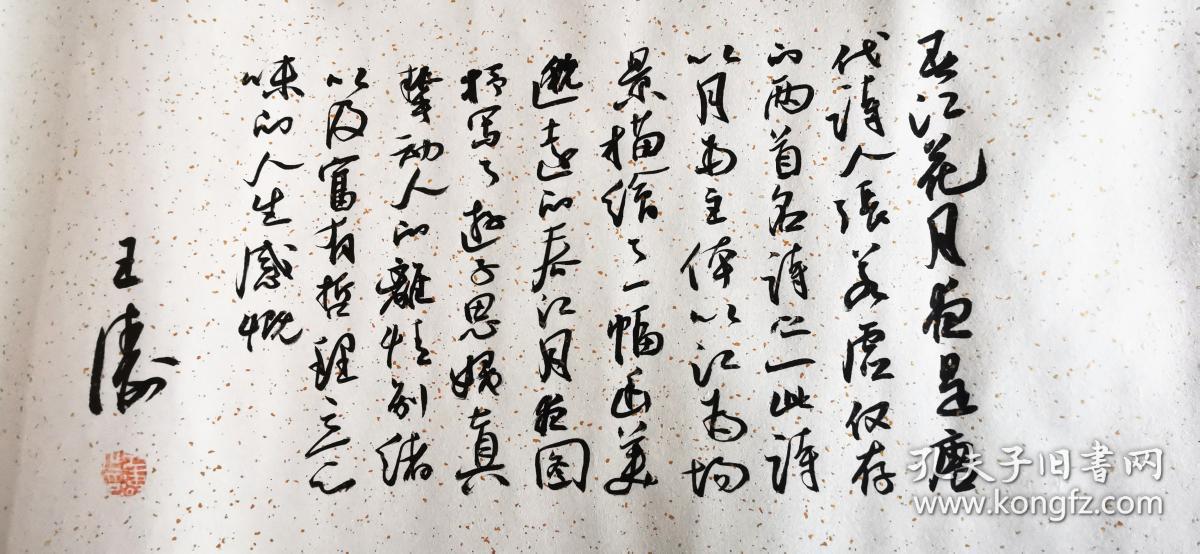 春江花月夜是唐
代诗人張若虚仅存
的两首名诗之一此诗
以月为主体以江为场
景描绘了一幅幽美
邈远的春江月夜图
抒写了游子思婦真
挚动人的離情别绪
以及富有哲理意
味的人生感慨
王涛
孔夫子旧書网
www.kongfz.com